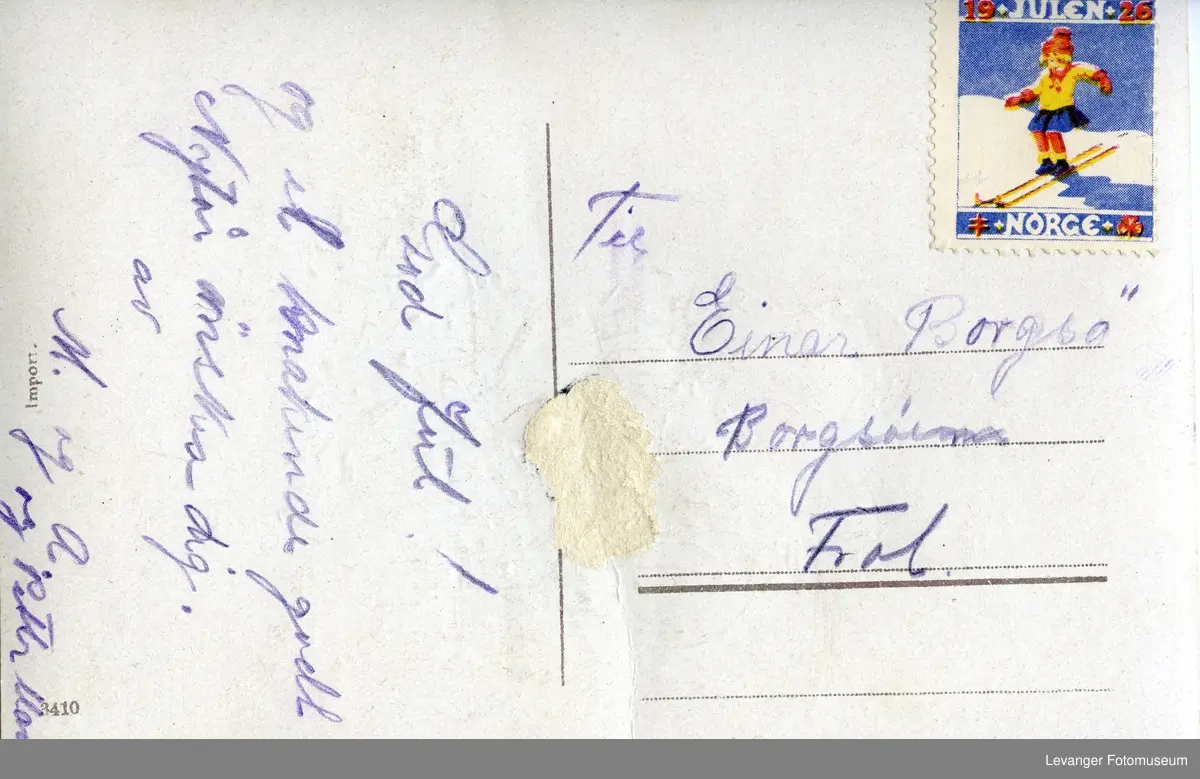 God Jul!
og et kommende godt
Nytår ønskes dig.
av
N. og A
og Petter
Import.
3410
19 JULEN 26
NORGE
Til
Einar Borgsø"
Borgsøin
Frol.
Levanger Fotomuseum